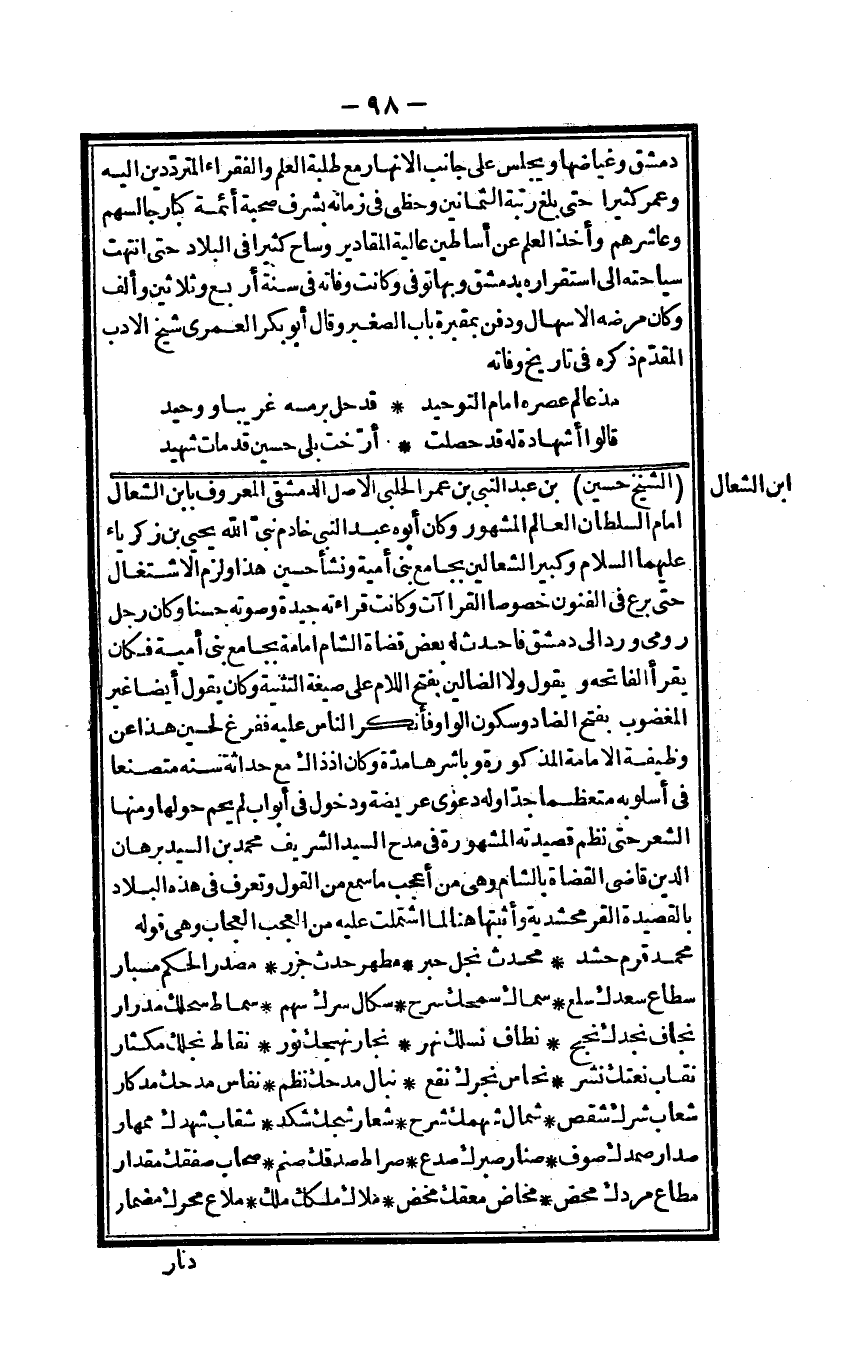 — ٩٨ —
دمشق وغياضها ويجلس على جانب الانهار مع طلبة العلم والفقراء المتردّدين اليه
وعمر كثيرا حتى بلغ رتبة الثمانين وحظى فى زمانه بشرف صحبة أئمة كبار جالسهم
وعاشرهم وأخذ العلم عن أساطين عالية المقادير وساح كثيرا فى البلاد حتى انتهت
سياحته الى استقراره بدمشق وبها توفى وكانت وفاته فى سنة أربع وثلاثين وألف
وكان مرضه الاسهال ودفن بمقبرة باب الصغير وقال أبو بكر العمرى شيخ الادب
المقدّم ذكره فى تاريخ وفاته
مذ عالم عصره امام التوحيد * قد حل برمسه غريبا ووحيد
قالوا أشهادة له قد حصلت * أرّخت بلى حسين قد مات شهيد
ابن الشعال
(الشيخ حسين) بن عبد النبى بن عمر الحلبى الاصل الدمشقى المعروف بابن الشعال
امام السلطان العالم المشهور وكان أبوه عبد النبى خادم نبىّ الله يحيى بن زكرياء
عليهما السلام وكبير الشعالين بجامع بنى أمية ونشأ حسين هذا ولزم الاشتغال
حتى برع فى الفنون خصوصا القراآت وكانت قراءته جيدة وصوته حسنا وكان رجل
رومى ورد الى دمشق فاحدث له بعض قضاة الشام امامة بجامع بنى أمية فكان
يقرأ الفاتحه ويقول ولا الضالين بفتح اللام على صيغة التثنية وكان يقول أيضا غير
المغضوب بفتح الضاد وسكون الواو فأنكر الناس عليه ففرغ لحسين هذا عن
وظيفة الامامة المذكورة وباشرها مدّة وكان اذذاك مع حداثة سنه متصنعا
فى أسلوبه متعظما جدّا وله دعوى عريضة ودخول فى أبواب لم يحم حولها ومنها
الشعر حتى نظم قصيدته المشهورة فى مدح السيد الشريف محمد بن السيد برهان
الدين قاضى القضاة بالشام وهى من أعجب ما سمع من القول وتعرف فى هذه البلاد
بالقصيدة القرمحشدية وأثبتها هنا لما اشتملت عليه من العجب العجاب وهى قوله
محمد قرم حشد * محدث نجل حبر * مطهر حدث خزر * مصدر الحكم مسبار
سطاع سعدك سلع * سمالك سمحك سرح * سكال سرك سهم * سماط سحلك مدرار
نجاف نجدك نجح * نطاف نسلك نهر * نجار نهجك نور * نقاط نجلك مكثار
نقاب نعتك نشر * نحاس نجرك نقع * نبال مدحك نظم * نفاس مدحك مدكار
شعاب شرك شقص * شمال نهمك شرح * شعار شجك شكد * شقاب شهدك ممهار
صدار صمدك صوف * صنار صبرك صدع * صراط صدقك صنم * صحاب صفقك مقدار
مطاع مردك محض * مخاض معقك مخض * ملاك ملكك ملك * ملاع محرك مضمار
دثار